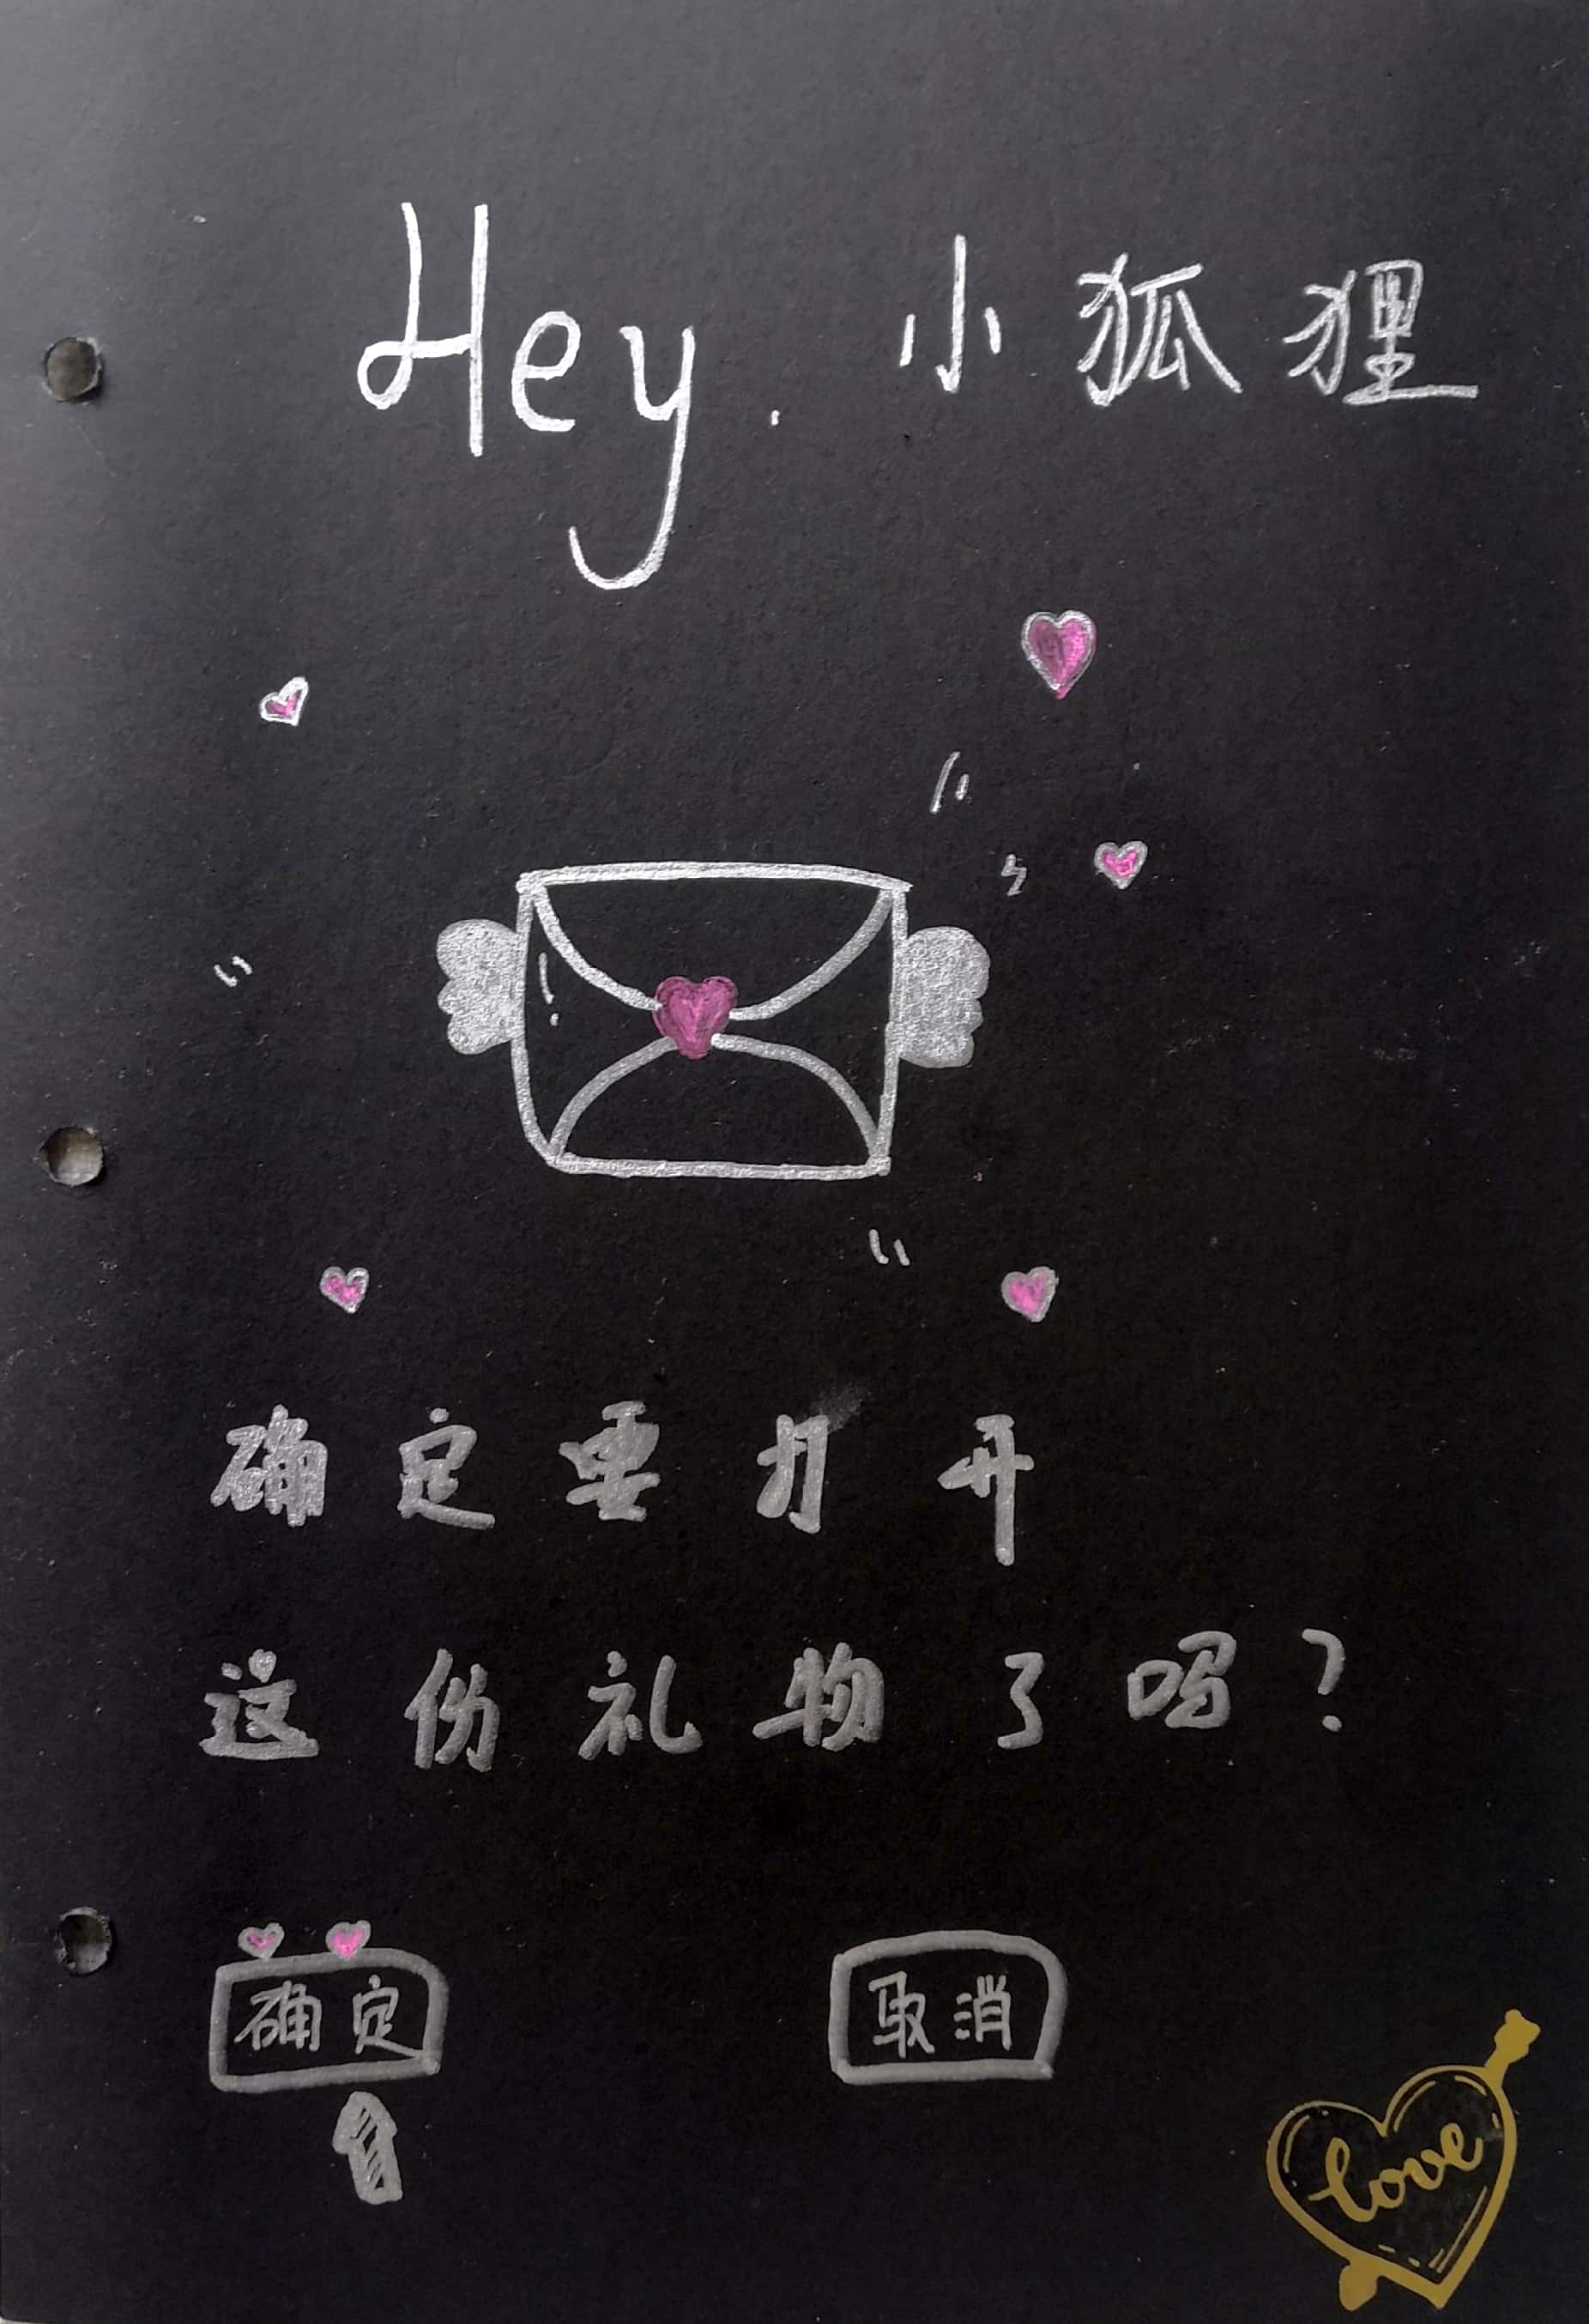 Hey. 小狐狸
确定要打开
这份礼物了吗?
确定 取消
love